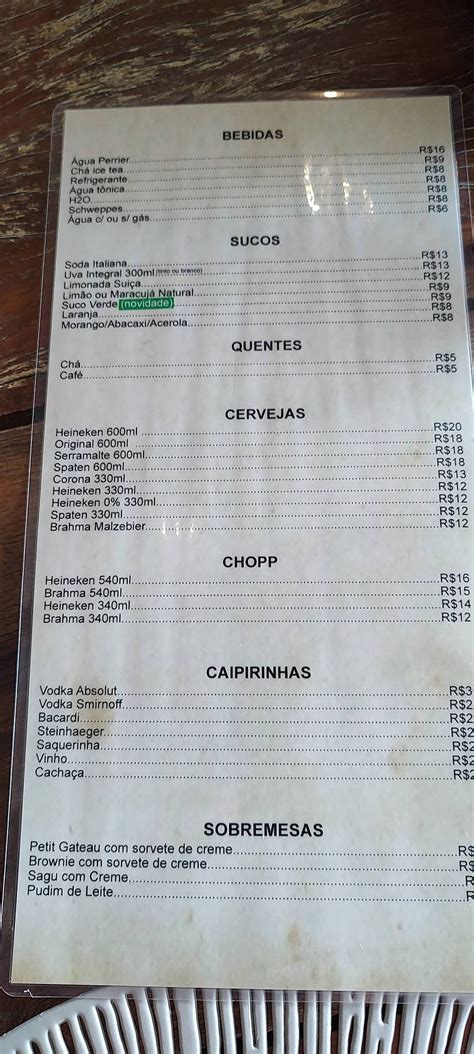 BEBIDAS
Água Perrier.....R$16
Chá ice tea.....R$9
Refrigerante.....R$8
Água tônica.....R$8
H2O.....R$8
Schweppes.....R$8
Água c/ ou s/ gás.....R$6
SUCOS
Soda Italiana.....R$13
Uva Integral 300ml (tinto ou branco).....R$13
Limonada Suiça.....R$12
Limão ou Maracujá Natural.....R$9
Suco Verde (novidade).....R$9
Laranja.....R$8
Morango/Abacaxi/Acerola.....R$8
QUENTES
Chá.....R$5
Café.....R$5
CERVEJAS
Heineken 600ml.....R$20
Original 600ml.....R$18
Serramalte 600ml.....R$18
Spaten 600ml.....R$18
Corona 330ml.....R$13
Heineken 330ml.....R$12
Heineken 0% 330ml.....R$12
Spaten 330ml.....R$12
Brahma Malzebier.....R$12
CHOPP
Heineken 540ml.....R$16
Brahma 540ml.....R$15
Heineken 340ml.....R$14
Brahma 340ml.....R$12
CAIPIRINHAS
Vodka Absolut.....R$3
Vodka Smirnoff.....R$2
Bacardi.....R$2
Steinhaeger.....R$2
Saquerinha.....R$2
Vinho.....R$2
Cachaça.....R$2
SOBREMESAS
Petit Gateau com sorvete de creme.....R$
Brownie com sorvete de creme.....R$
Sagu com Creme.....R
Pudim de Leite.....R